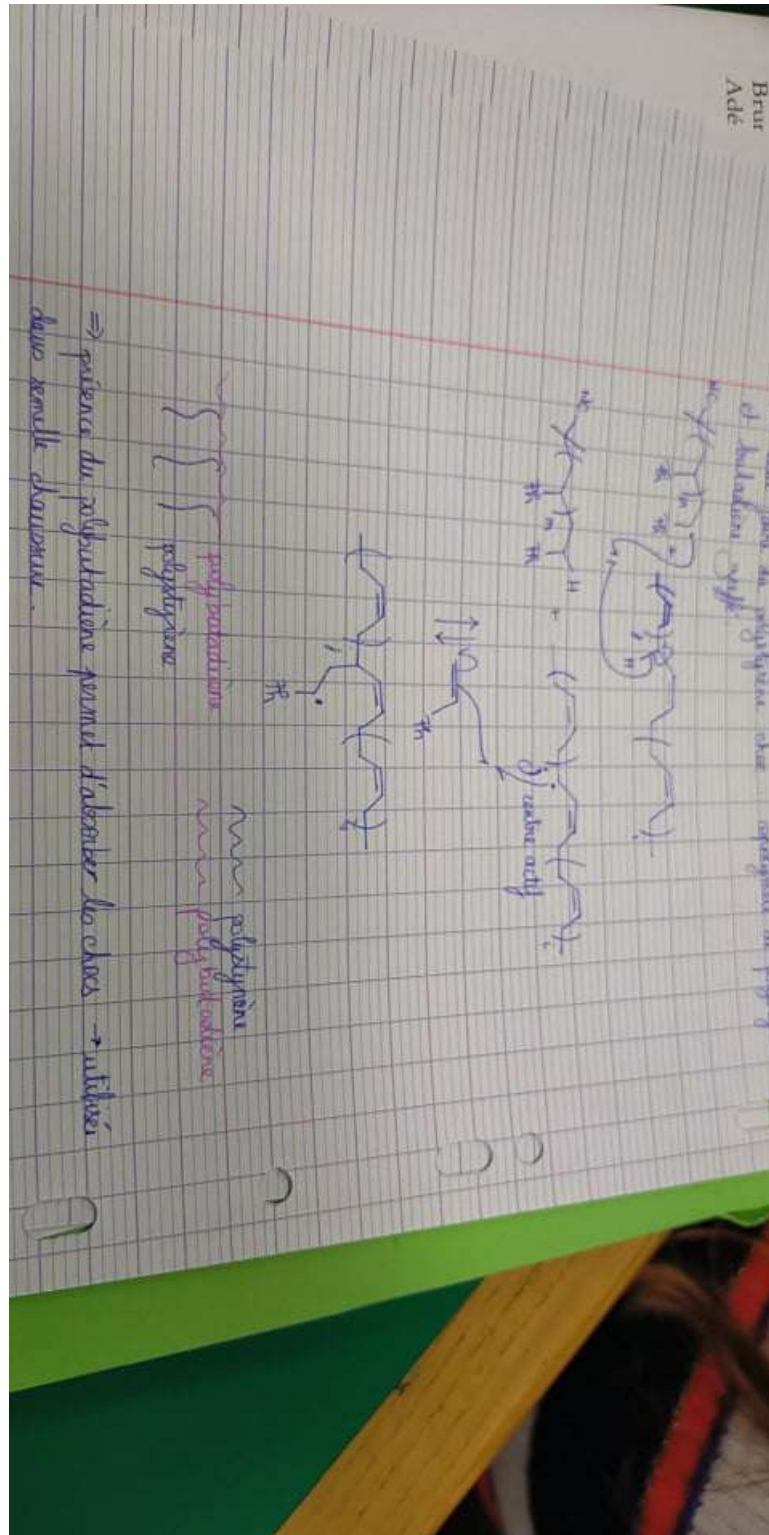 Brur
Adé
du polystyrène choc
et butadiène
NC
Ph
Ph
H
NC
Ph
Ph
H
+
centre actif
Ph
Ph
polybutadiène
polystyrène
polystyrène
polybutadiène
⇒ présence du polybutadiène permet d'absorber les chocs → utilisé
dans semelle chaussure.